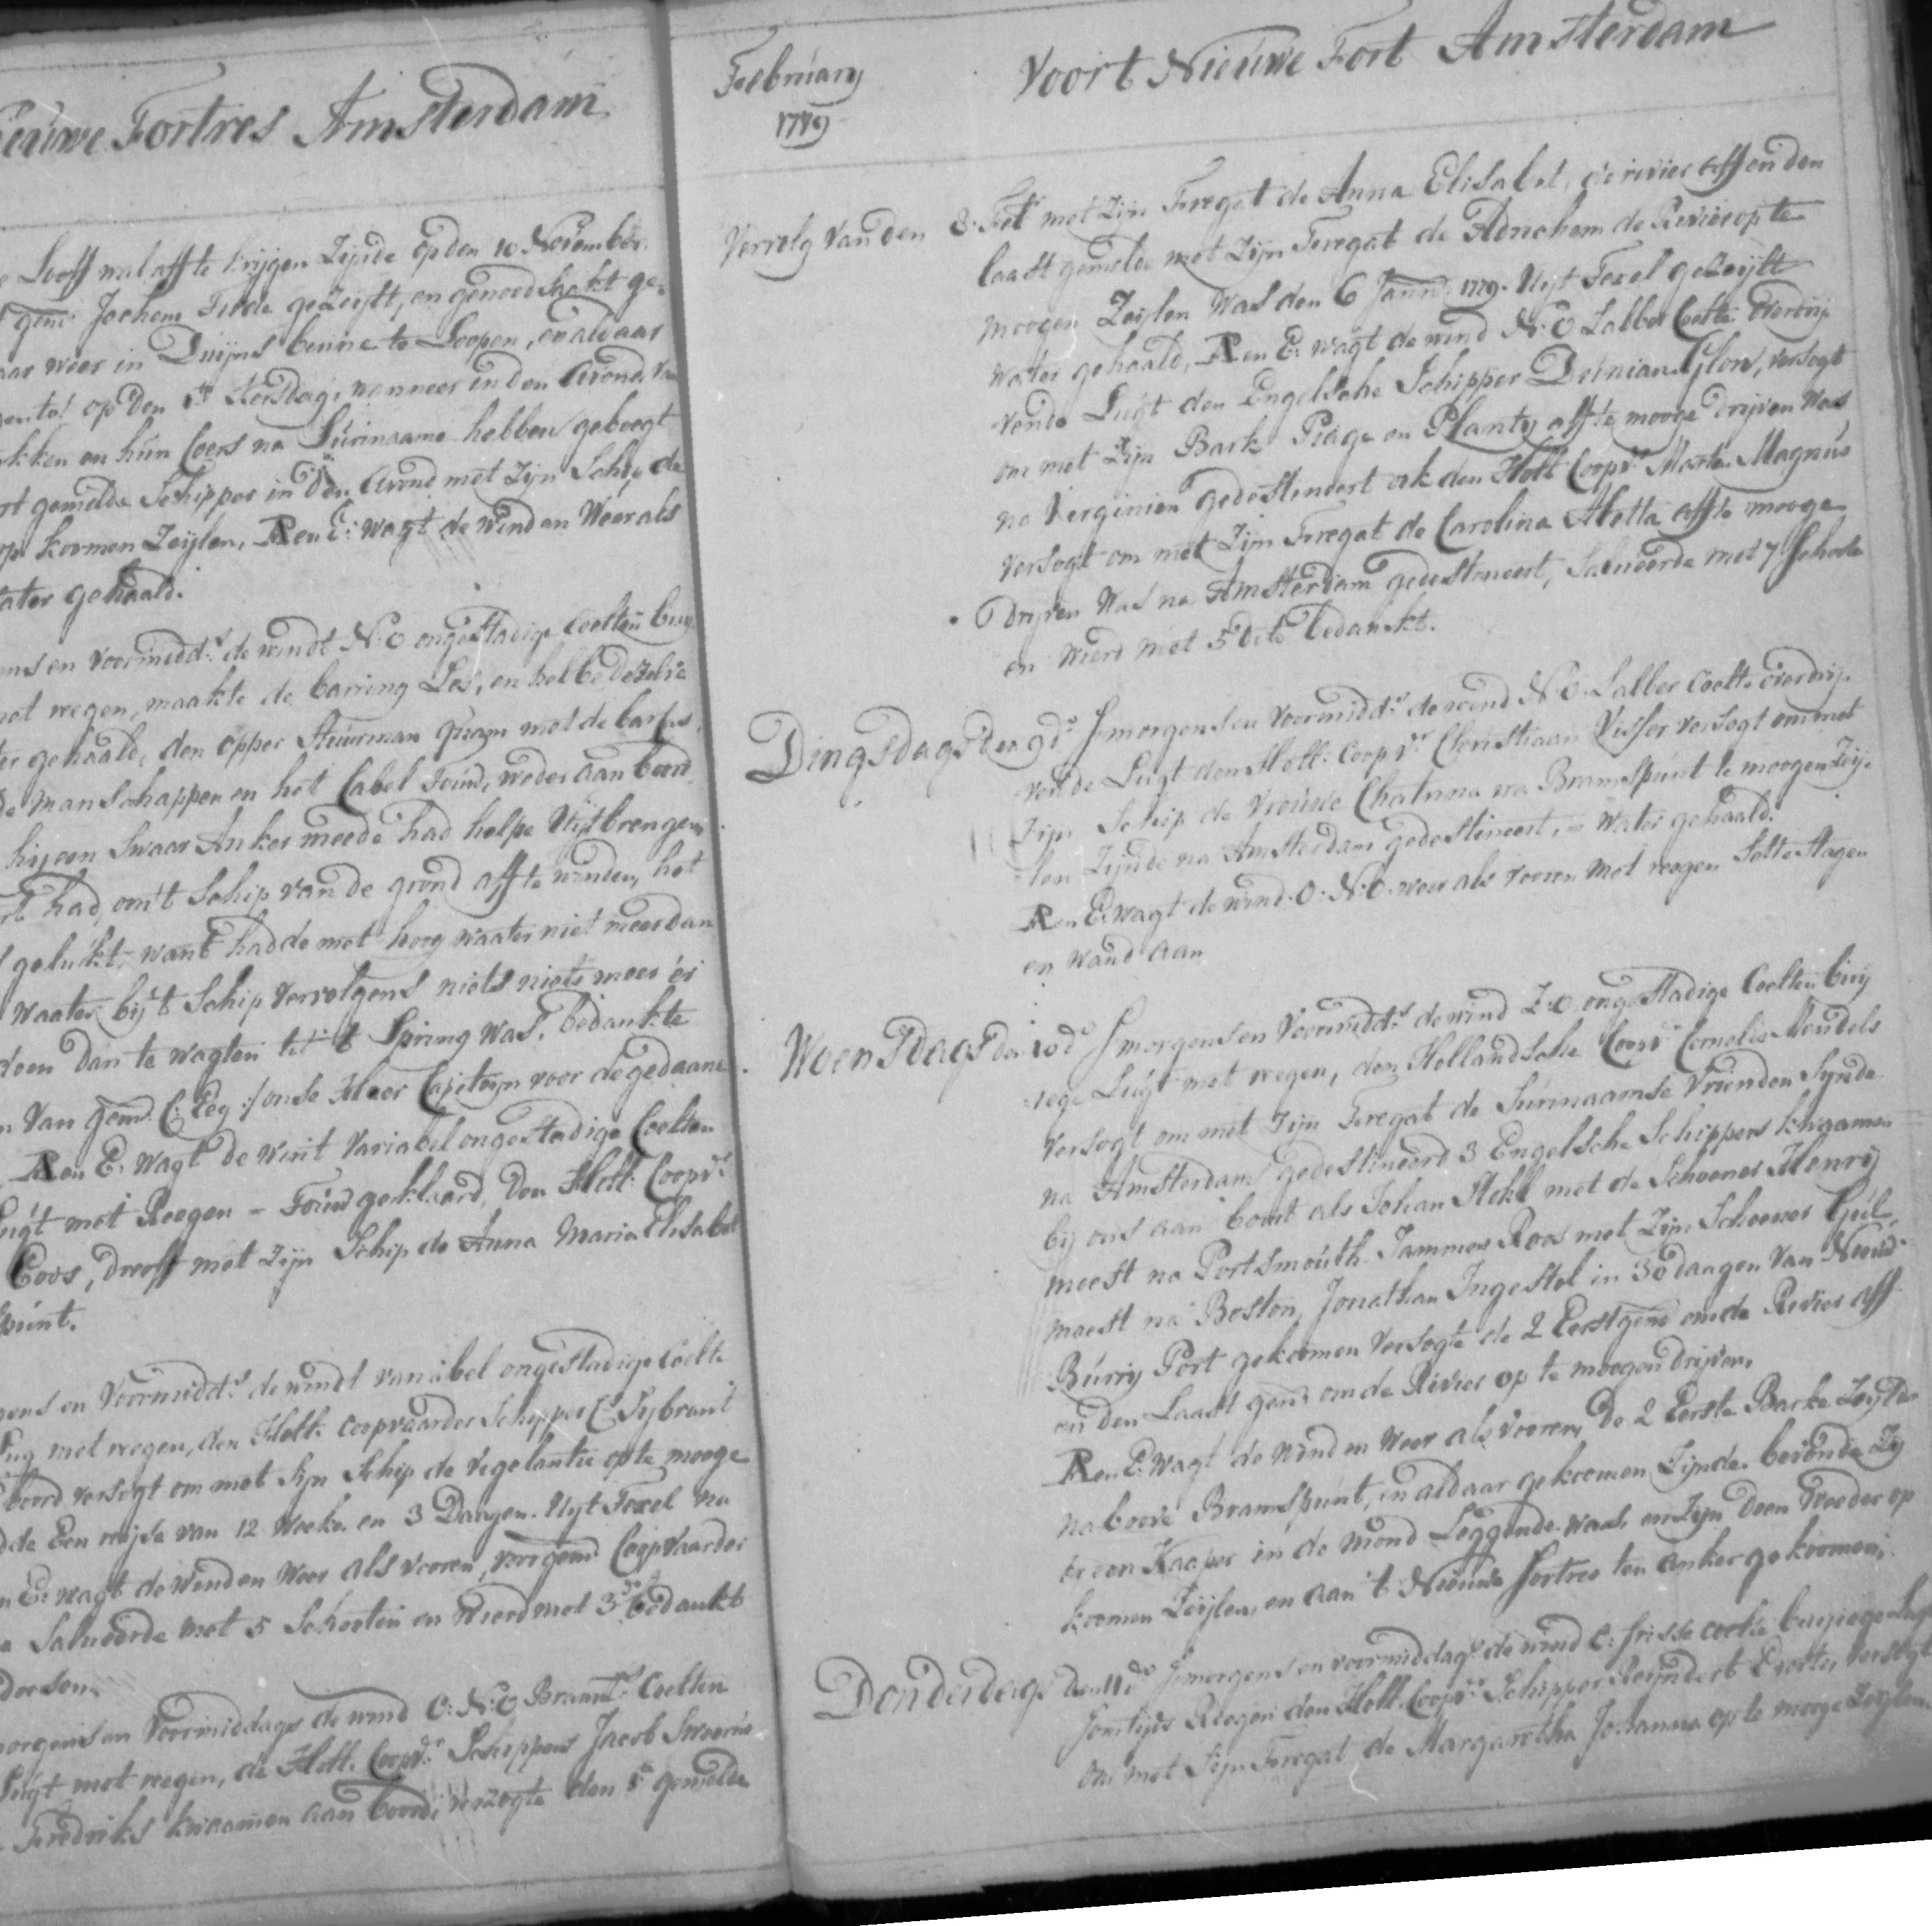 Fortres Amsterdam
Looff mal aff te krijgen Zijnde op den 10 November
gem: Jochem Tiede geZeijlt, en genoodsaakt ge
weer in Duijns benne te Loopen, en aldaar
op den 1st Korsdag, wanneer in den Avond van
en hun Coers na Surinaame hebben geboogt
gemelde Schipper in den Avond met Zijn Schip de
op koomen Zeijlen, A en E: wagt de wind en Weer als
gehaald.
en voormidd:s de windt N:O ongestadige Coelten buij
regen, maakte de barring Los, en hebbe dezelve
gehaald, den opper Stuurman quam met de barkas,
manschappen en het Cabel Touw, weder aan boord
hij een Swaar Anker meede had helpe Uijtbrengen
had, om't Schip van de grond aff te winden, het
gelukt, want hadde met hoog waater niet meer dan
waater bij't Schip vervolgens niets niets meer er
doen dan te wagten tot 't Spring was, bedankte
van gem: C: Eeg: onse Heer Capiteyn voor de gedaane
A en E: Wagt de wint Variabel ongestadige Coelten
Lugt met Reegen - Touw geklaard, Den Holl: Coopv:r
Coos, dreeff met Zijn Schip de Anna Maria Elisabet
punt.
en Voormidd:s de windt variabel ongestadige Coelte
met reegen, den Holl: coopvaarder Schipper C: Sijbrant
boord versogt om met Sijn Schip de Vigelantie op te mooge
Een reijse van 12 Weeke en 3 Daagen Uijt Texel na
E: wagt de wind en Weer als vooren, voorgem: Coopvaarder
Salueerde met 5 Schooten en Wierd met 3 d:o bedankt

en Voormiddags de wind O:N:O Bramz:s Coelten
Lugt met reegen, de Holl: Coopv:s Schippers Jacob
Fredriks kwaamen aan boord, verzogte den 1st gemelde
February
1779
Voort Nieuwe Fort Amsterdam
Vervolg van den 8: Feb:r met Zijn Fregat de Anna Elisabet, de rivier aff en den
laast gemelde met Zijn Fregat de Adrichem de Rivier op te
moogen Zeijlen Was den 6 Jann: 1779. Uijt Texel geZeijlt
Water gehaald, A en E: wagt de wind N:O Labber Coelte Overdrij
vende Lugt den Engelsche Schipper Glow, versogt
om met Zijn Bark Peage en Planty aff te mooge Drijven Was
na Verginien gedestineert ook den Holl Coopv:r Marten Magnus
versogt om met Zijn Fregat de Carolina Aletta aff te mooge
Drijven Was na Amsterdam gedestineert, Salueerde met 7 Schoote
en wierd met 5 dito bedankt.
Dingsdags den 9d:o Smorgens en Voormidd:s de wind N:O. Labber Coelte overdrij
vende Lugt den Holl: Coopv:r Christiaan Visser versogt om met
Zijn Schip de Vrouwe Chatrina na Bramspunt te moogen Zeij
len Zijnde na Amsterdam gedestineert, - Water gehaald.
A en E: wagt de wind O:N:O. weer als vooren met reegen Sette Stagen
en wand aan
Woensdags den 10d:o Smorgens en Voormidd:s de wind Z:O. ongestadige Coelten buij
iege Lugt met reegen, den Hollandsche Coopv:r Cornelis Mindels
versogt om met Zijn Fregat de Surinaamse Vrienden Sijnde
na Amsterdam gedestineerd 3 Engelsche Schippers kwaamen
bij ons aan boort als Johan Stokl met de Schooner Henrij
moest na Portsmouth. Jammes Roos met Zijn Schooner
moest na Boston, Jonathan Ingestel in 30 daagen van Nieuw
Burrij Port gekoomen versogte de 2 Eerstgem: om de Rivier aff
en den Laast gem: om de Rivier op te moogen drijven.
A en E: Wagt de wind en Weer als vooren, De 2 Eerste Barke Zeijlde
na boove Bramspunt, en aldaar gekoomen Zijnde bevonde Zij
er een Kaaper in de mond Leggende was, en Zijn doen weeder op
koomen Zeijlen, en aan 't Nieuwe fortres ten anker gekoomen.
Donderdags den 11d:o Smorgens en voormiddags de wind O: frisse coelte buijige Lugt
Somtijds Reegen den Holl: Coopv:r Schipper Reijndert Everts, versogt
om met Sijn Fregat de Margaretha Johanna op te mooge Zeijlen